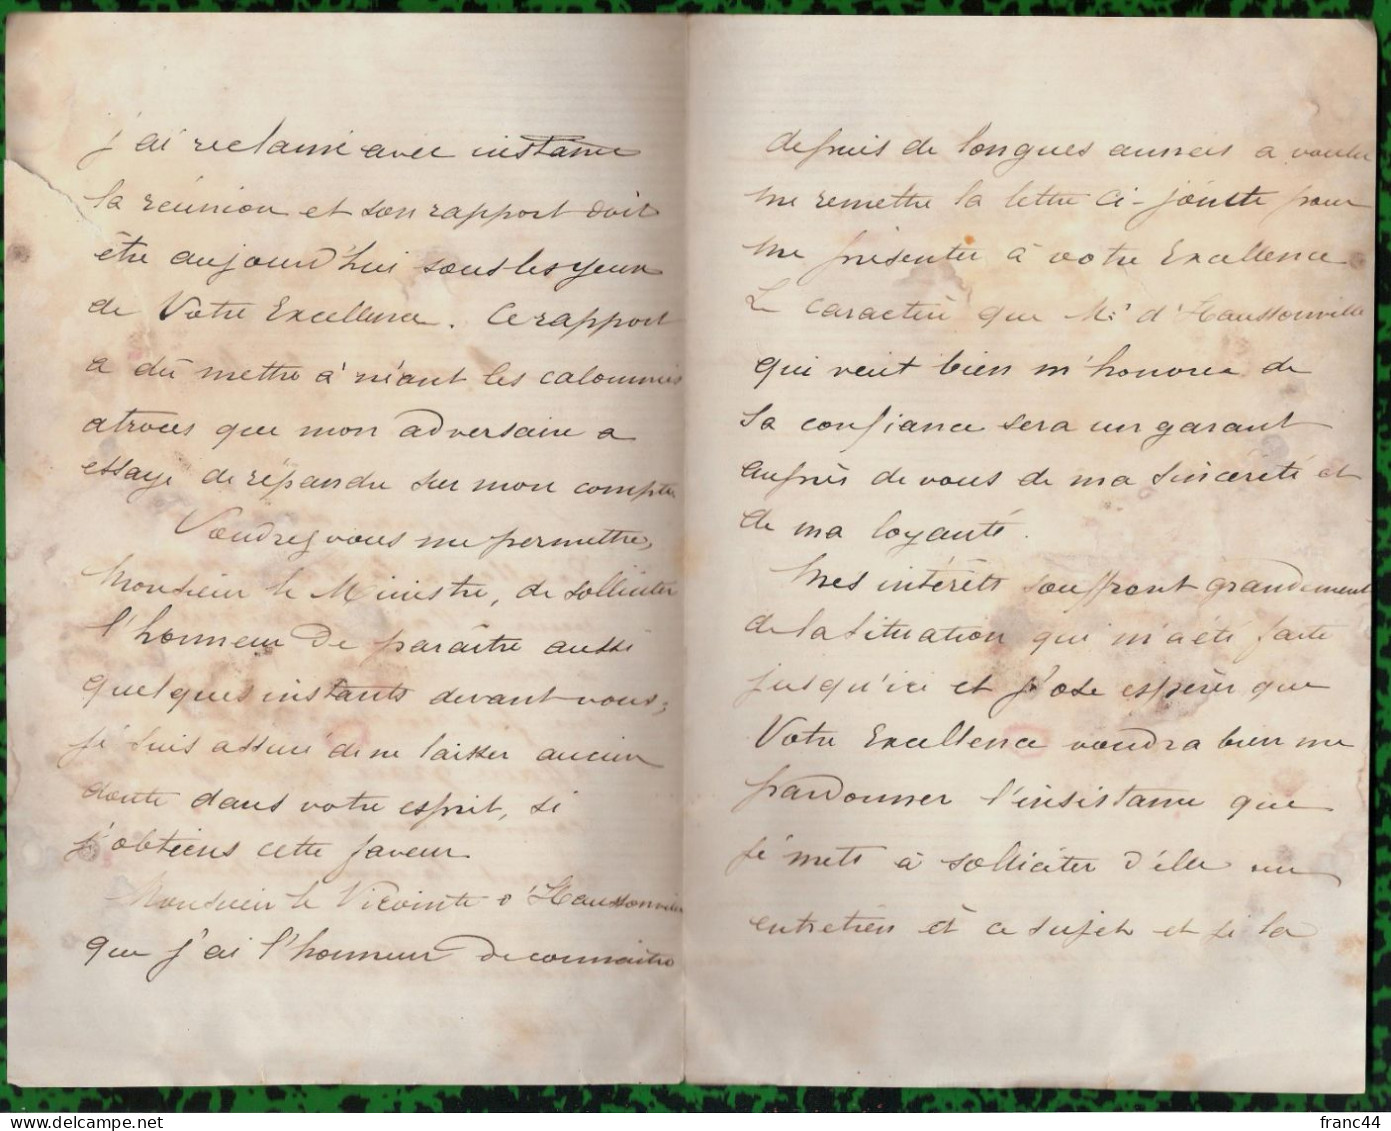 j'ai reclamé avec instance
la réunion et son rapport doit
être aujourd'hui sous les yeux
de Votre Excellence. Ce rapport
a dû mettre à néant les calomnies
atroces que mon adversaire a
essayé de répandre sur mon compte
Voudrez vous me permettre,
Monsieur le Ministre, de solliciter
l'honneur de paraître aussi
quelques instants devant vous;
je suis assuré de ne laisser aucun
doute dans votre esprit, si
j'obtiens cette faveur
Monsieur le Vicomte d'Haussonville
que j'ai l'honneur de connaître
depuis de longues annees a voulu
me remettre la lettre ci-jointe pour
me présenter à votre Excellence
Le caractère que Mr d'Haussonville
qui veut bien m'honorer de
sa confiance sera un garant
auprès de vous de ma sincérité et
de ma loyauté.
Mes intérêts souffrent grandement
de la situation qui m'a été faite
jusqu'ici et j'ose espérer que
Votre Excellence voudra bien me
pardonner l'insistance que
je mets à solliciter d'elle un
entretien à ce sujet et si la
franc44